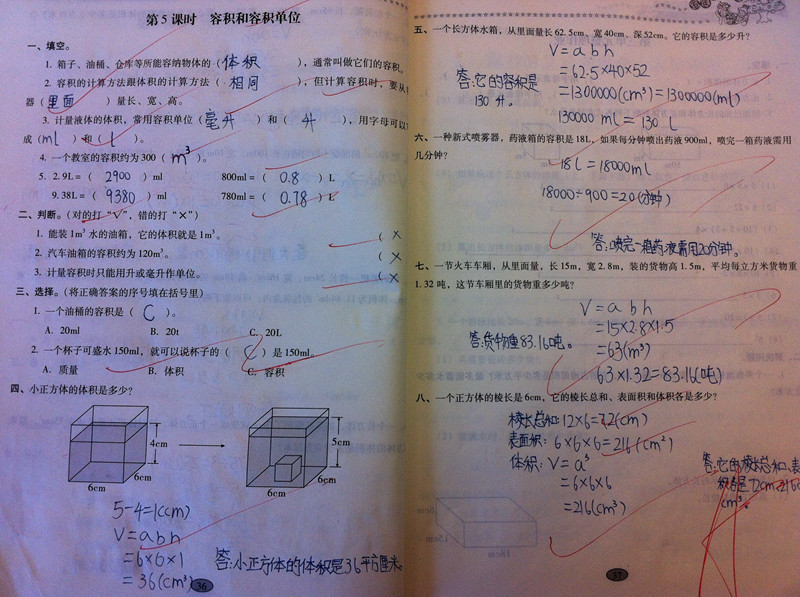 第5课时 容积和容积单位
一、填空。
1. 箱子、油桶、仓库等所能容纳物体的(体积),通常叫做它们的容积。
2. 容积的计算方法跟体积的计算方法(相同),但计算容积时,要从
器(里面)量长、宽、高。
3. 计量液体的体积,常用容积单位(毫升)和(升),用字母可以
成(ml)和(l)。
4. 一个教室的容积约为300(m³)。
5. 2.9L=(2900)ml 800ml=(0.8)L
9.38L=(9380)ml 780ml=(0.78)L
二、判断。(对的打“√”,错的打“×”)
1. 能装1m³水的油箱,它的体积就是1m³。 (×
2. 汽车油箱的容积约为120m³。 (×
3. 计量容积时只能用升或毫升作单位。 (×
三、选择。(将正确答案的序号填在括号里)
1. 一个油桶的容积是(C)。
A. 20ml B. 20t C. 20L
2. 一个杯子可盛水150ml,就可以说杯子的(C)是150ml。
A. 质量 B. 体积 C. 容积
四、小正方体的体积是多少?
4cm
6cm
6cm
5cm
6cm
6cm
5-4=1(cm)
V=abh
=6×6×1
=36(cm³)
答:小正方体的体积是36平方厘米。
36
五、一个长方体水箱,从里面量长62.5cm、宽40cm、深52cm。它的容积是多少升?
V=abh
=62.5×40×52
=1300000(cm³)=1300000(ml)
130000ml=130l
答:它的容积是
130升。
六、一种新式喷雾器,药液箱的容积是18L,如果每分钟喷出药液900ml,喷完一箱药液需用
几分钟?
18L=18000ml
18000÷900=20(分钟)
答:喷完一箱药液需用20分钟。
七、一节火车车厢,从里面量,长15m,宽2.8m,装的货物高1.5m,平均每立方米货物重
1.32吨,这节车厢里的货物重多少吨?
V=abh
=15×2.8×1.5
=63(m³)
63×1.32=83.16(吨)
答:货物重83.16吨。
八、一个正方体的棱长是6cm,它的棱长总和、表面积和体积各是多少?
棱长总和:12×6=72(cm)
表面积:6×6×6=216(cm²)
体积:V=a³
=6×6×6
=216(cm³)
答:它的棱长总和、表
72cm、216
cm³。
37